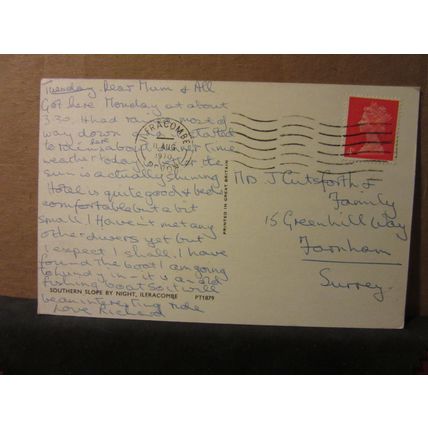 Tuesday. Dear Mum & All
Got here Monday at about
3.30. Had rain most of
way down and it started
to rain hard
weather today
sun is actually shining
Hotel is quite good & bed
comfortable but a bit
small. I Haven't met any
other divers yet but
I expect I shall. I have
found the boat I am going
to Lundy in - it is an old
fishing boat so it will
be an interesting ride
Love Richard
SOUTHERN SLOPE BY NIGHT, ILFRACOMBE PT1879
PRINTED IN GREAT BRITAIN
ILFRACOMBE
AUG
1970
DEVON
J Cutsforth &
Family
15 Greenhill Way
Farnham
Surrey.